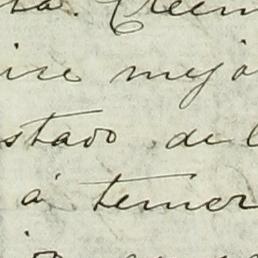 ta. Creem
irse mejo
stado de l
á temer